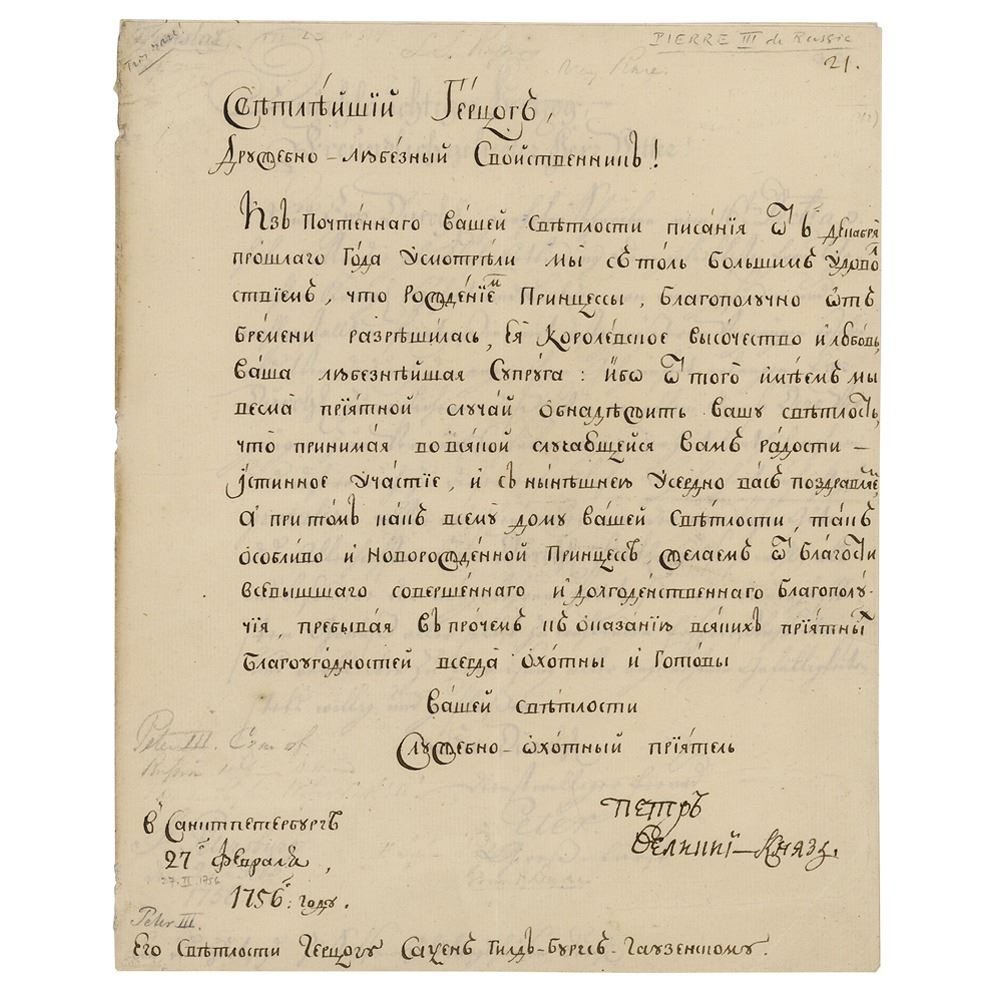 very rare!
PIERRE III de Russie
Very Rare.
21.
Свѣтлѣйшїй Герцогъ,
Дружебно-любезный Свойственникъ!
Изъ почтеннаго вашей Свѣтлости писанїя ѿ 6 декабря
прошлаго Года усмотрѣли мы съ толь большимъ удово
ствїемъ, что рожденїемъ Принцессы, благополучно ѿтъ
бремени разрѣшилась, Ея Королевское высочество и любовь,
ваша любезнѣйшая Супруга: ибо ѿ того имѣемъ мы
весма прїятной случай обнадежить вашу свѣтлость,
что принимая во всякой случающейся вамъ радости —
истинное участїе, и съ нынѣшнею усердно васъ поздравляемъ,
а при томъ какъ всему дому вашей Свѣтлости, такъ
особливо и новорожденной Принцессѣ, желаемъ ѿ благости
всевышшаго совершеннаго и долгоденственнаго благополу-
чїя, пребывая въ прочемъ къ оказанїю всякихъ прїятныхъ
благоугодностей всегда охотны и готовы
вашей свѣтлости
Служебно-ѡхотный прїятель
Peter III. Czar of
Russia
Петръ
Великий-Князь.
в Санктпетербургъ
27 февраля,
27. II. 1756
1756: году.
Peter III.
Его Свѣтлости Герцогу Саxенъ Гилдъ-Бургъ-Гаузенскому.